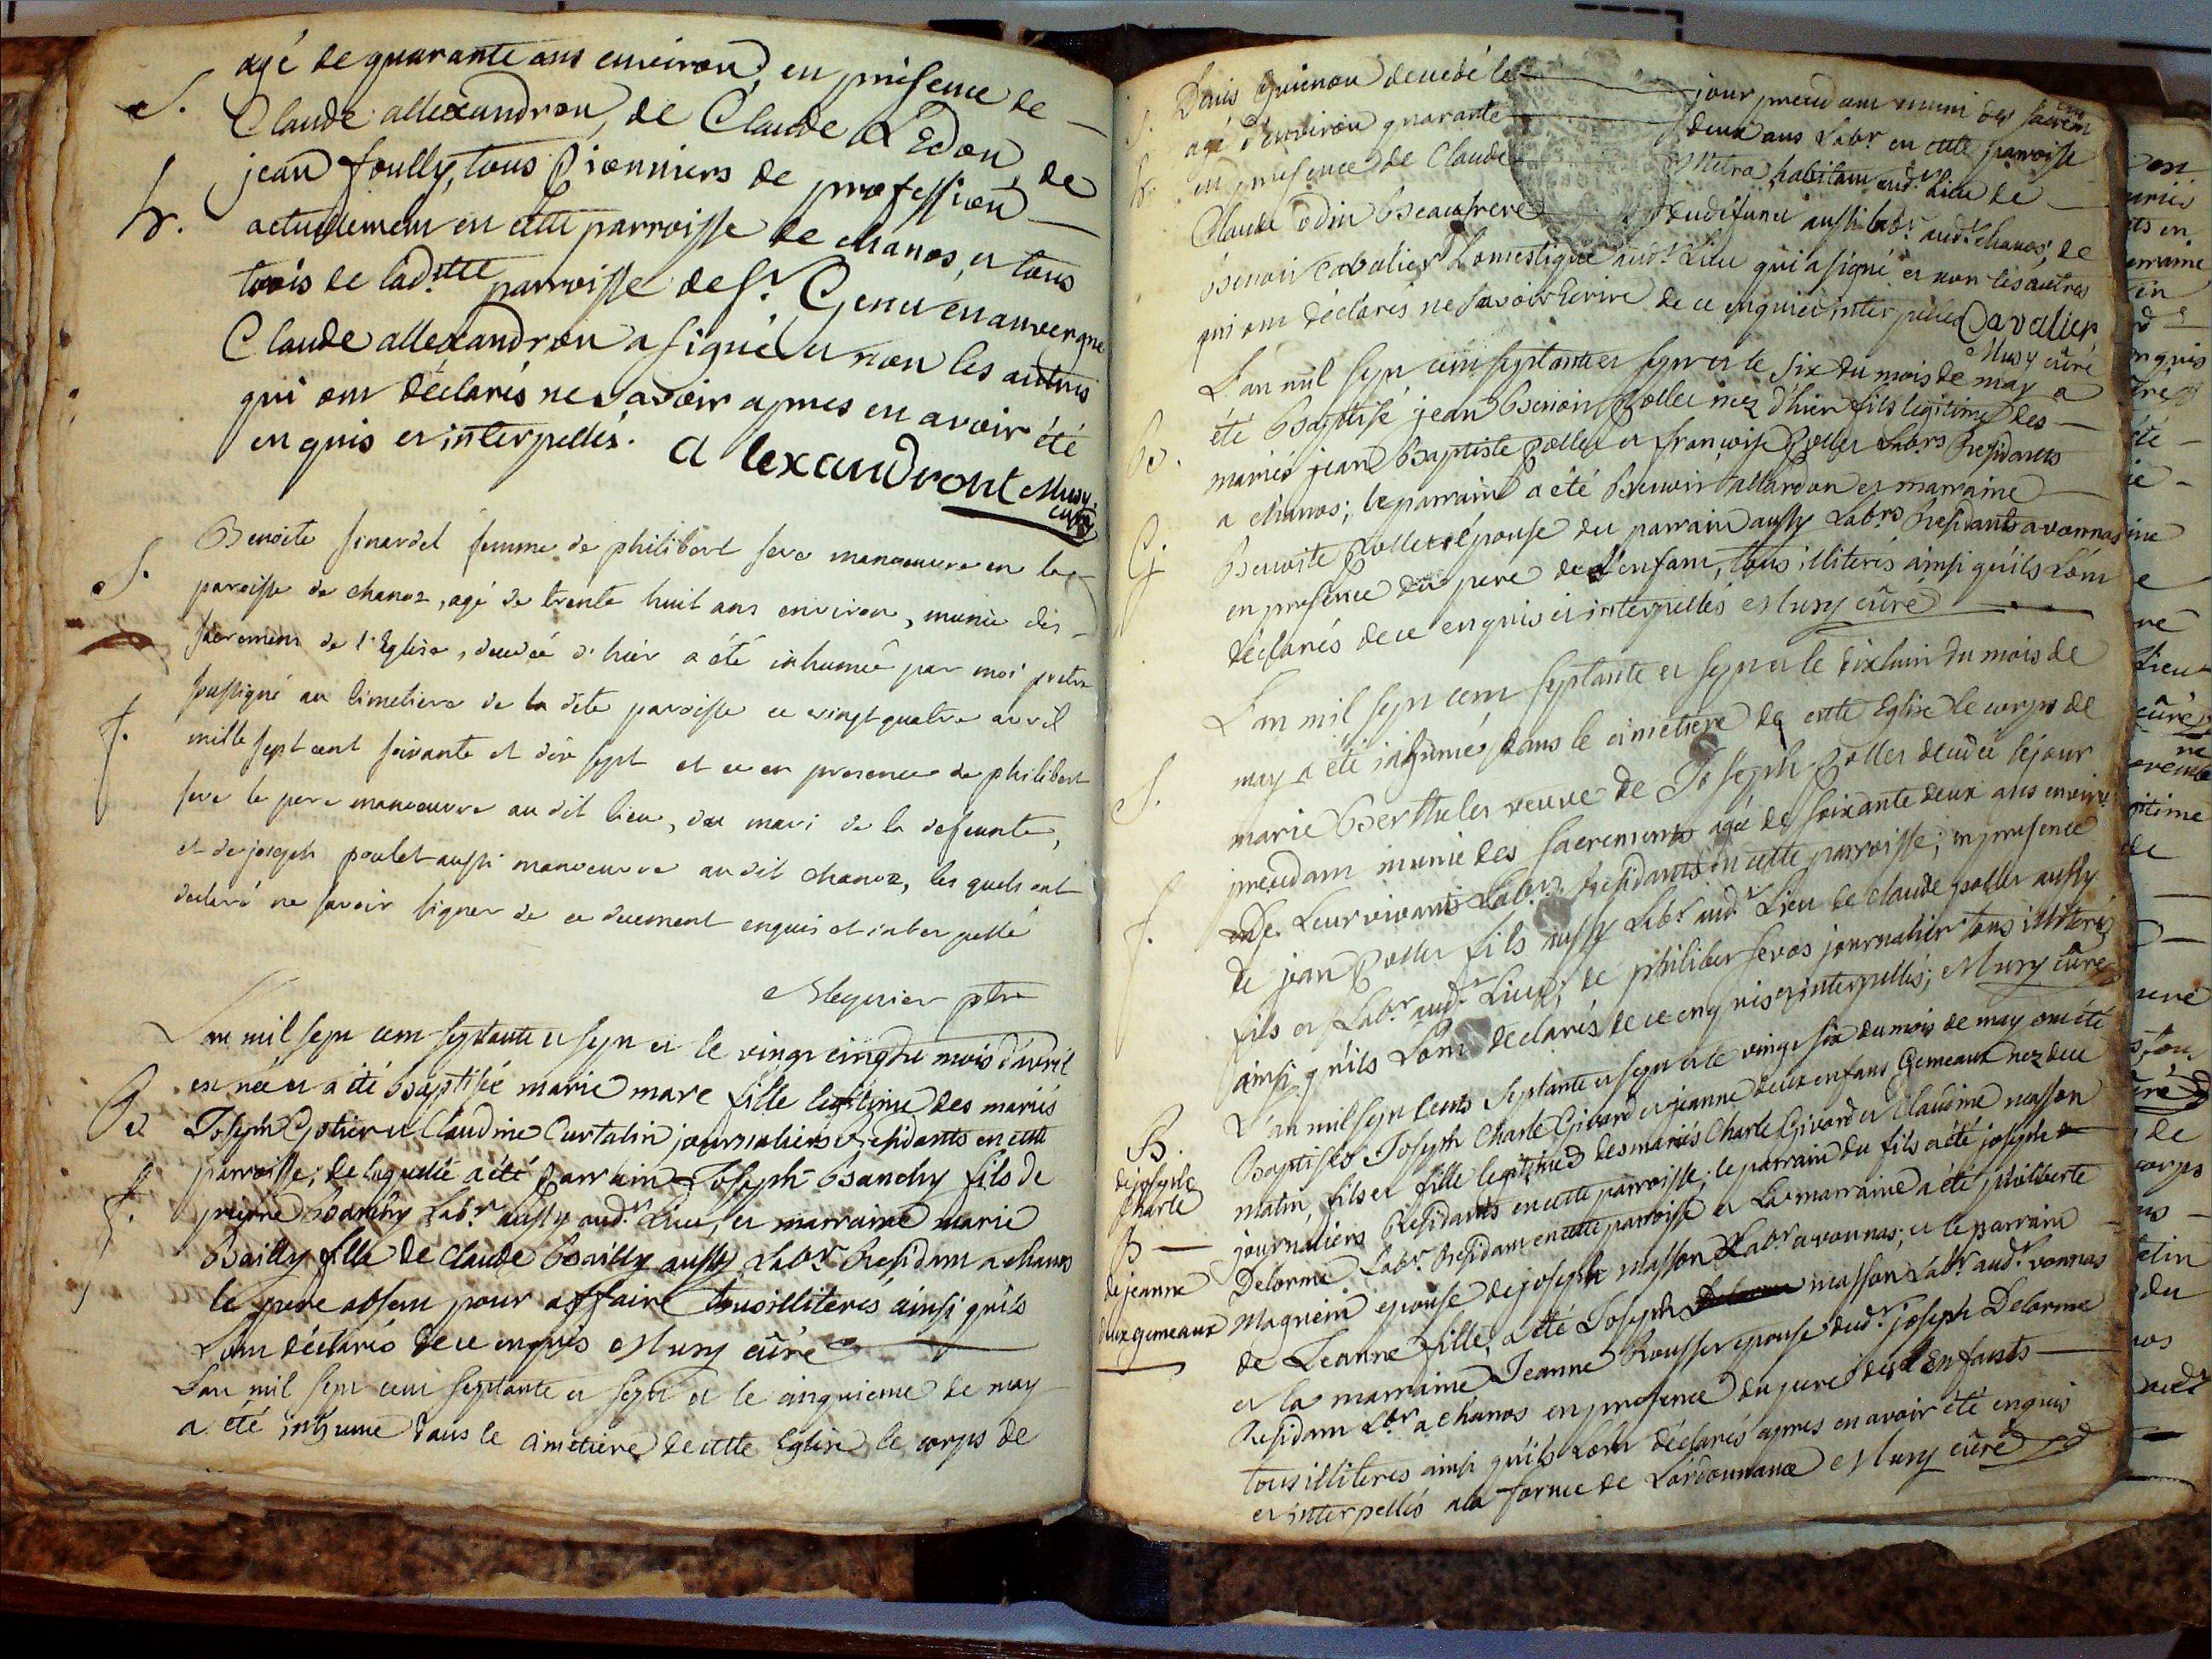 S.
agé de quarante ans environ, en presence de
Claude allexandron, de Claude Ledon, de
jean foully, tous Pionniers de profession
h.
actuelement en cette parroisse de chanos, et tous
trois de ladte parroisse de St. Genu en auvergne
Claude allexandron a signé et non les autres
qui ont déclarés ne savoir apres en avoir été
enquis et interpellés. Alexandront Musy
curé
Benoite finardel femme de philibert ferre manoeuvre en la
S.
paroisse de chanoz, agé de trente huit ans environ, munie des
sacremens de l'Eglise, decedé d'hier a été inhumé par moi pretre
soussigné au cimetiere de la dite paroisse ce vingt quatre avril
f.
mille sept cent soixante et dix sept et ce en presence de philibert
le pere manoeuvre au dit lieu, du mari de la defunte,
et de joseph poulet aussi manoeuvre au dit chanoz, les quels ont
declaré ne savoir signer de ce duement enquis et interpellé
ptre
L'an mil sept cent septante et sept et le vingt cinq du mois d'avril
B.
est née et a été baptisée marie marc fille legitime des mariés
Joseph Gotier et Claudine Curtalin journaliers residants en cette
parroisse; de laquelle a été Parrain Joseph Banchy fils de
f.
pierre Banchy Labr. aussy audt. Lieu, et marraine marie
Bailly fille de Claude Bailly aussy Labr. Residant a chanos
le pere absent pour affaire tous illiterés ainsi qu'ils
L'ont déclarés de ce enquis Musy curé
L'an mil sept cent septante et sept et le cinquieme de may
a été inhumé dans le cimetiere de cette Eglise le corps de
S.
Denis Guienon decedé le jour precedant muni des sacrem
agé d'environ quarante deux ans Labr. en cette parroisse
h.
en presence de Claude Mitra habitant audt. Lieu de
Claude odin beaufrere dudéfunct aussi labr. audt. chanos, de
Benoit Cavalier Domestique audt. Lieu qui a signé et non les autres
qui ont déclarés ne savoir Ecrire de ce enquis et interpellés Cavalier
Musy curé
L'an mil sept cent septante et sept et le six du mois de may a
été Baptisé jean Benoit Pollet nez d'hier fils legitime des
B.
mariés jean Baptiste Pollet et françoise Pollet Labrs Residants
a chanos; le parrain a été Benoit allardon et marraine
G.
Benoite Pollet épouse du parrain aussy Labrs. Residants a vonnas
en presence du pere de l'enfant, tous illiterés ainsi qu'ils L'ont
déclarés de ce enquis et interpellés Musy curé
L'an mil sept cent septante et sept et le dixhuit du mois de
S.
may a été inhumé dans le cimetiere de cette Eglise le corps de
marie Berthelet veuve de Joseph Pollet decedée lejour
precedant munie des sacrements agée de soixante deux ans environ
f.
De Leur vivants Labrs. residants en cette parroisse; en presence
de jean Pollet fils aussy Labr. audt. Lieu de Claude pollet aussy
fils et Labr. audt. Lieu; de philibert fevos journalier tous illiterés
ainsi qu'ils L'ont déclarés de ce enquis et interpellés; Musy curé
L'an mil sept Cents Septante et sept et le vingt six du mois de may ont été
B.
de joseph
charle
Baptisés Joseph Charle Givard et jeanne deux enfans Gemeaux nez de ce
matin, fils et fille legitimes des mariés Charle Givard et Claudine masson
B
de jeanne
deux gemeaux
journaliers Residants en cette parroisse; le parrain du fils a été joseph
Delorme Labr. Residant en cette parroisse et La marraine a été philiberte
Maguein epouse de joseph masson Labr. a vonnas; et le parrain
de Jeanne fille, a été Joseph masson Labr. audt. vonnas
et la marraine Jeanne Rousset epouse dudt. joseph Delorme
Residant Lbr a chanos en presence du pere des Enfants
tous illiterés ainsi qu'ils L'ont déclarés apres en avoir été enquis
et interpellés a la forme de L'ordonnance Musy curé